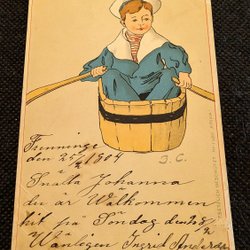 Trinninge
den 25/2 1904
J.C.
Snälla Johanna
du är Wälkommen
hit på Söndag den 28/2
Wänligen Ingrid